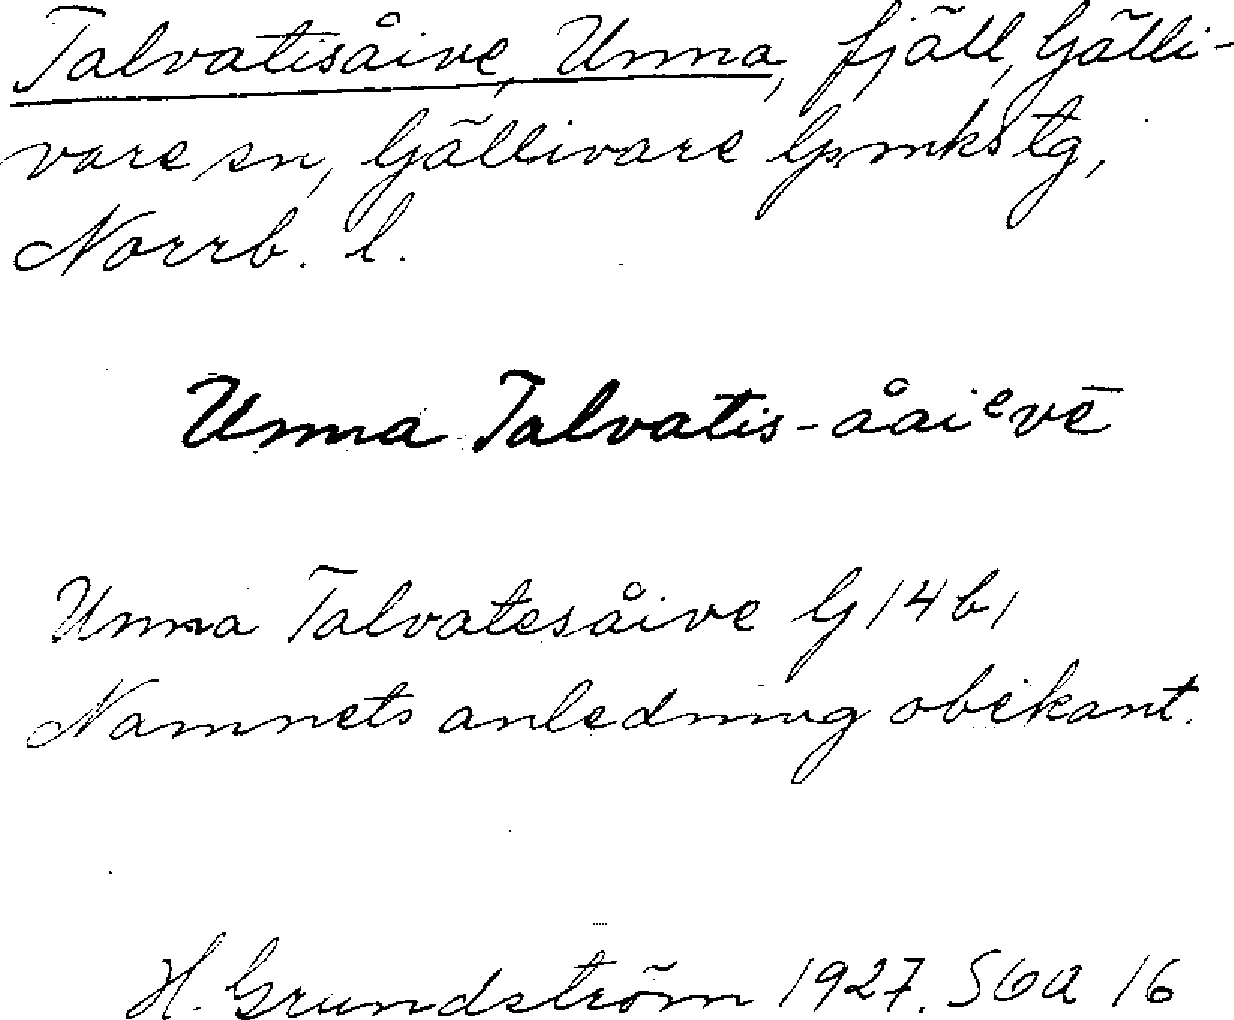 Talvatisåive, Unna, fjäll, Gälli-
vare sn, Gällivare lpmks tg,
Norrb. l.
Unna Talvatis-åaiᵉvē
Unna Talvatesåive G 14 b1
Namnets anledning obekant.
H. Grundström 1927. SOA 16